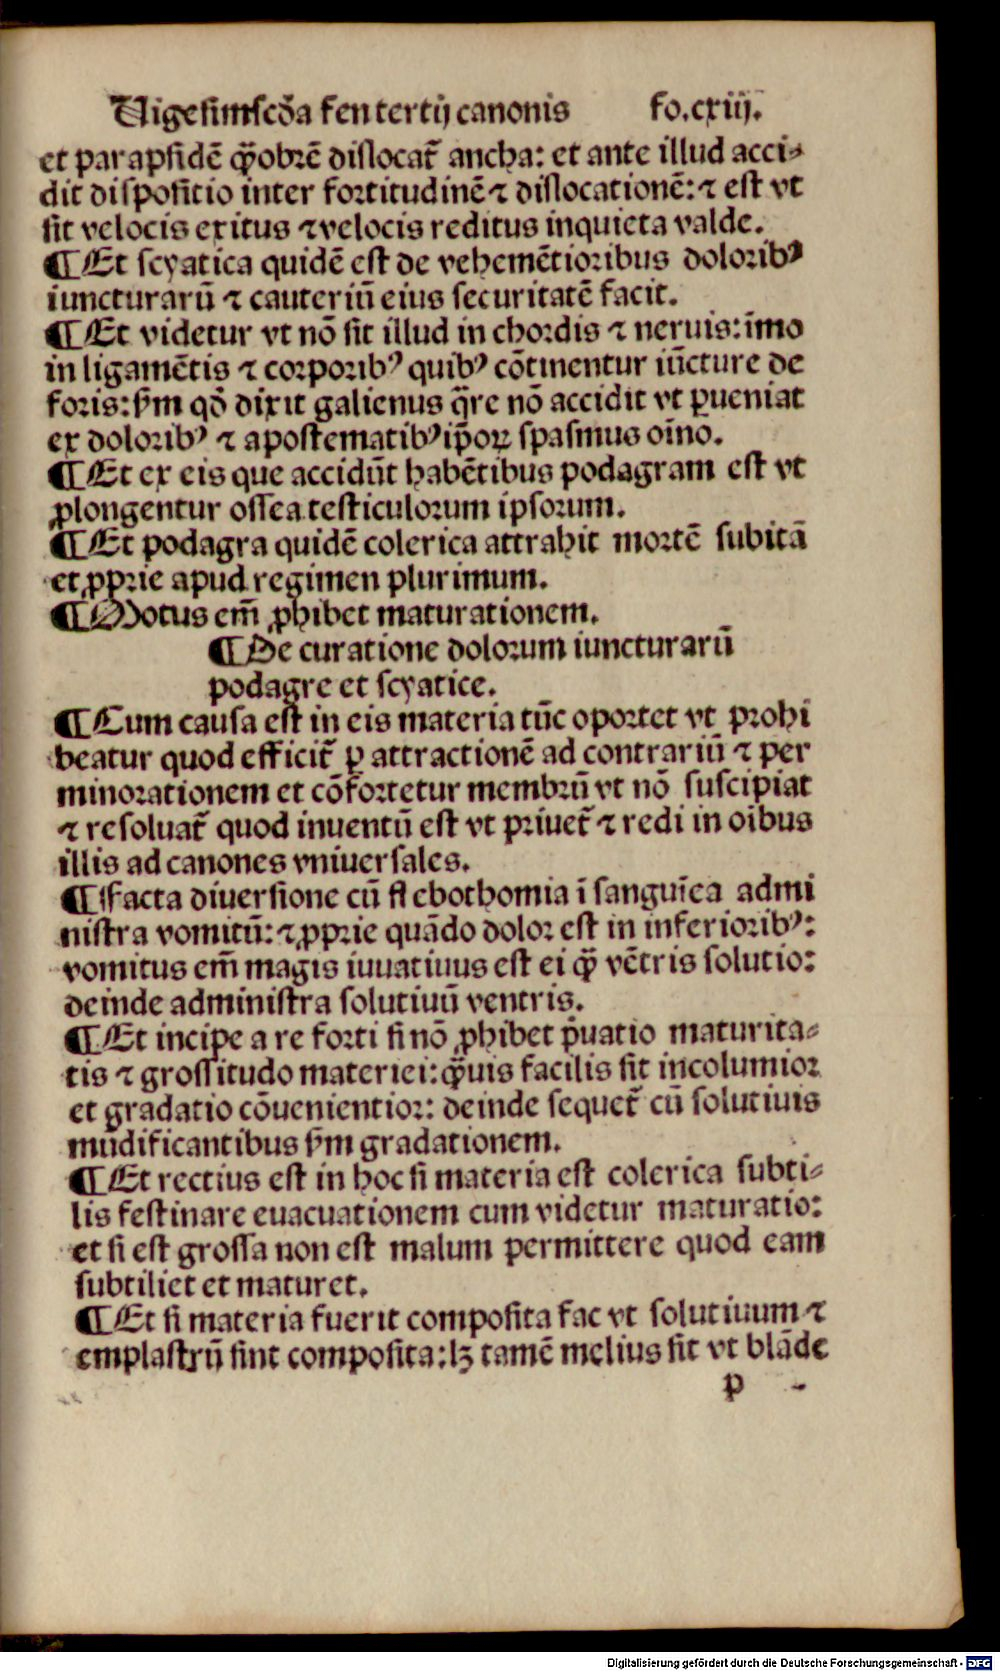 Uigesimscd̄a fen tertij canonis fo.cxiij.
et parapsidē qͣ̄obrē dislocat̄ ancha: et ante illud acci⸗
dit dispositio inter fortitudinē ⁊ dislocationē: ⁊ est vt
sit velocis exitus ⁊ velocis reditus inquieta valde.
¶ Et scyatica quidē est de vehemētioribus dolorib⁹
iuncturarū ⁊ cauteriū eius securitatē facit.
¶ Et videtur vt nō sit illud in chordis ⁊ neruis: īmo
in ligamētis ⁊ corporib⁹ quib⁹ cōtinentur iūcture de
foris: s̄m qd̄ dixit galienus q̄re nō accidit vt ꝑueniat
ex dolorib⁹ ⁊ apostematib⁹ ip̄oꝝ spasmus oīno.
¶ Et ex eis que accidūt habētibus podagram est vt
ꝓlongentur ossea testiculorum ipsorum.
¶ Et podagra quidē colerica attrahit mortē subitā
et ꝓprie apud regimen plurimum.
¶ Motus em̄ ꝓhibet maturationem.
¶ De curatione dolorum iuncturarū
podagre et scyatice.
¶ Cum causa est in eis materia tūc oportet vt prohi
beatur quod efficit̄ ꝑ attractionē ad contrariū ⁊ per
minorationem et cōfortetur membrū vt nō suscipiat
⁊ resoluat̄ quod inuentū est vt priuet̄ ⁊ redi in oibus
illis ad canones vniuersales.
¶ Facta diuersione cū flebothomia ī sanguīea admi
nistra vomitū: ⁊ ꝓprie quādo dolor est in inferiorib⁹:
vomitus em̄ magis iuuatiuus est ei qͣ̄ vētris solutio:
deinde administra solutiuū ventris.
¶ Et incipe a re forti si nō ꝓhibet p̄uatio maturita⸗
tis ⁊ grossitudo materiei: qͣ̄uis facilis sit incolumior
et gradatio cōuenientior: deinde sequet̄ cū solutiuis
mūdificantibus s̄m gradationem.
¶ Et rectius est in hoc si materia est colerica subti⸗
lis festinare euacuationem cum videtur maturatio:
et si est grossa non est malum permittere quod eam
subtiliet et maturet.
¶ Et si materia fuerit composita fac vt solutiuum ⁊
emplastrū sint composita: lꝫ tamē melius sit vt blāde
p
Digitalisierung gefördert durch die Deutsche Forschungsgemeinschaft - DFG